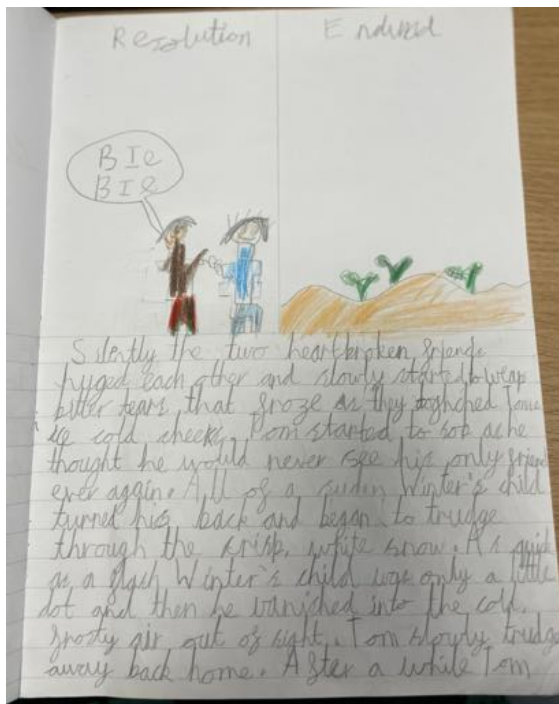 Resolution
Endured
BIe
BIe
Silently the two heartbroken friends
hyged each other and slowly started to weap
bitter tears that froze as they toghched Toms
ice cold cheeks. Tom started to sob as he
thought he would never see his only friend
ever again. All of a suden Winter's child
turned his back and began to trudge
through the krisp, white snow. As quik
as a flash Winter's child was only a little
dot and then he vanished into the cold,
frosty air out of sight. Tom slowly trudge
away back home. After a while Tom